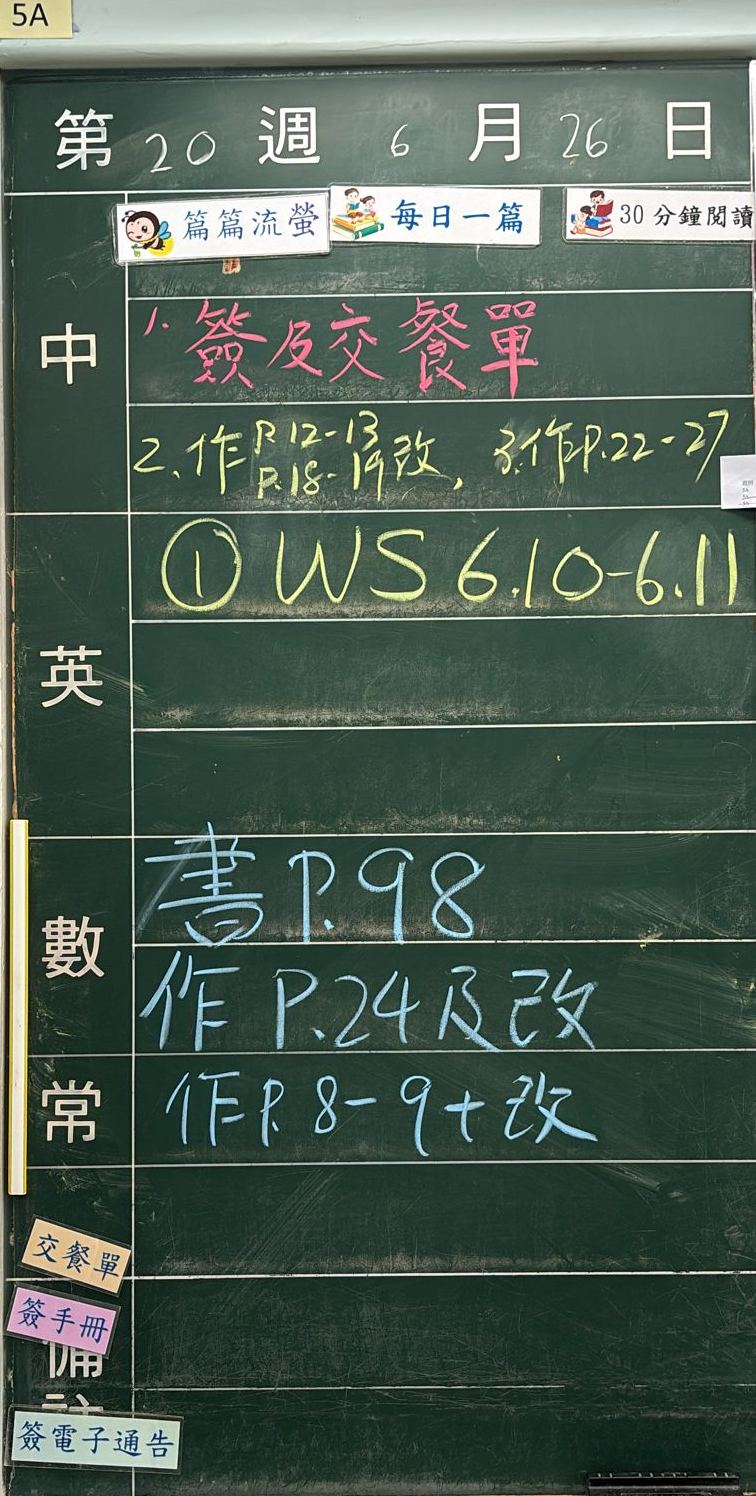 5A
第 20 週 6 月 26 日
篇篇流螢 每日一篇 30分鐘閱讀
中
1. 簽及交餐單
2. 作 P.12-13 P.18-19改, 3.作P.22-27
英
① WS 6.10-6.11
數
書 P.98
作 P.24 及改
常
作P.8-9+改
交餐單
簽手冊
備
簽電子通告